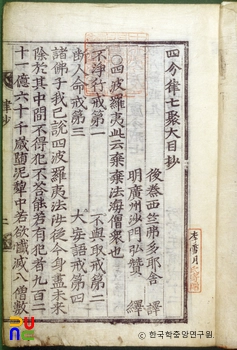 四分律七聚大目抄
後秦西竺那多耶舍 譯
明廣州沙門弘贊 繹
○四波羅夷此云棄棄法海僧衆也
不淨行戒第一 不與取戒第二
斷人命戒第三 大妄語戒第四
諸佛子我已說四波羅夷法汝後今身盡未來
際於其中間不得犯不答能若有犯者九百二
十一億六十千歲墮泥犂中若欲懺滅八僧數
律抄
李雪月
ⓒ 한국학중앙연구원